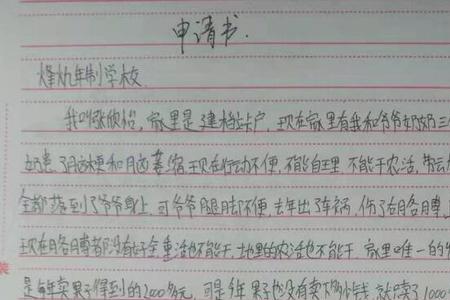 申请书.
烽火年制学校
我叫张欣怡，家里是建档立卡户，现在家里有我和爷爷奶奶三
奶患了脑梗和脑萎缩现在行动不便，不能自理不能干农活，
全部落到了爷爷身上，可爷爷腿脚不便，去年出了车祸，伤了右胳膊
现在胳膊都没有好全重活也不能干，地里的农活也不能干，家里唯一的
是每年卖果子得到的2000多元，可是今年果子也没有卖下多少钱，就只卖了1000